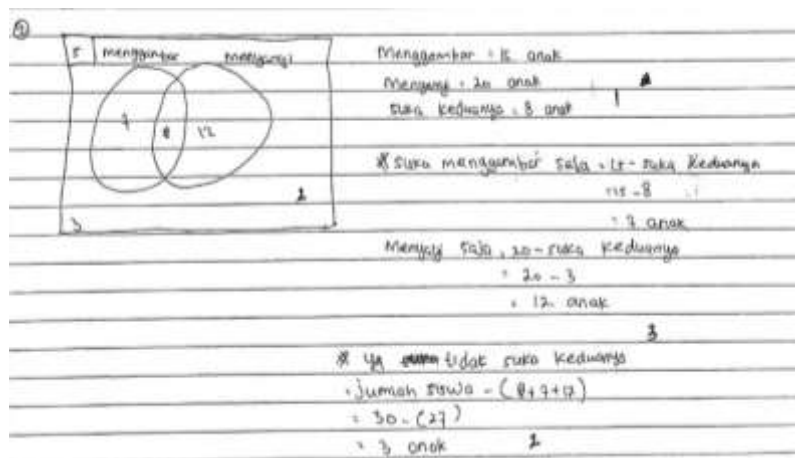 ②
S menggambar menyanyi
7 8 12
2
3
Menggambar = 15 anak
Menyanyi = 20 anak
Suka keduanya = 8 anak
1
* Suka menggambar saja = 15 - suka keduanya
= 15 - 8
= 7 anak
Menyanyi saja = 20 - suka keduanya
= 20 - 8
= 12 anak
3
* yg tidak suka keduanya
= jumlah siswa - (8+7+12)
= 30 - (27)
= 3 anak
2